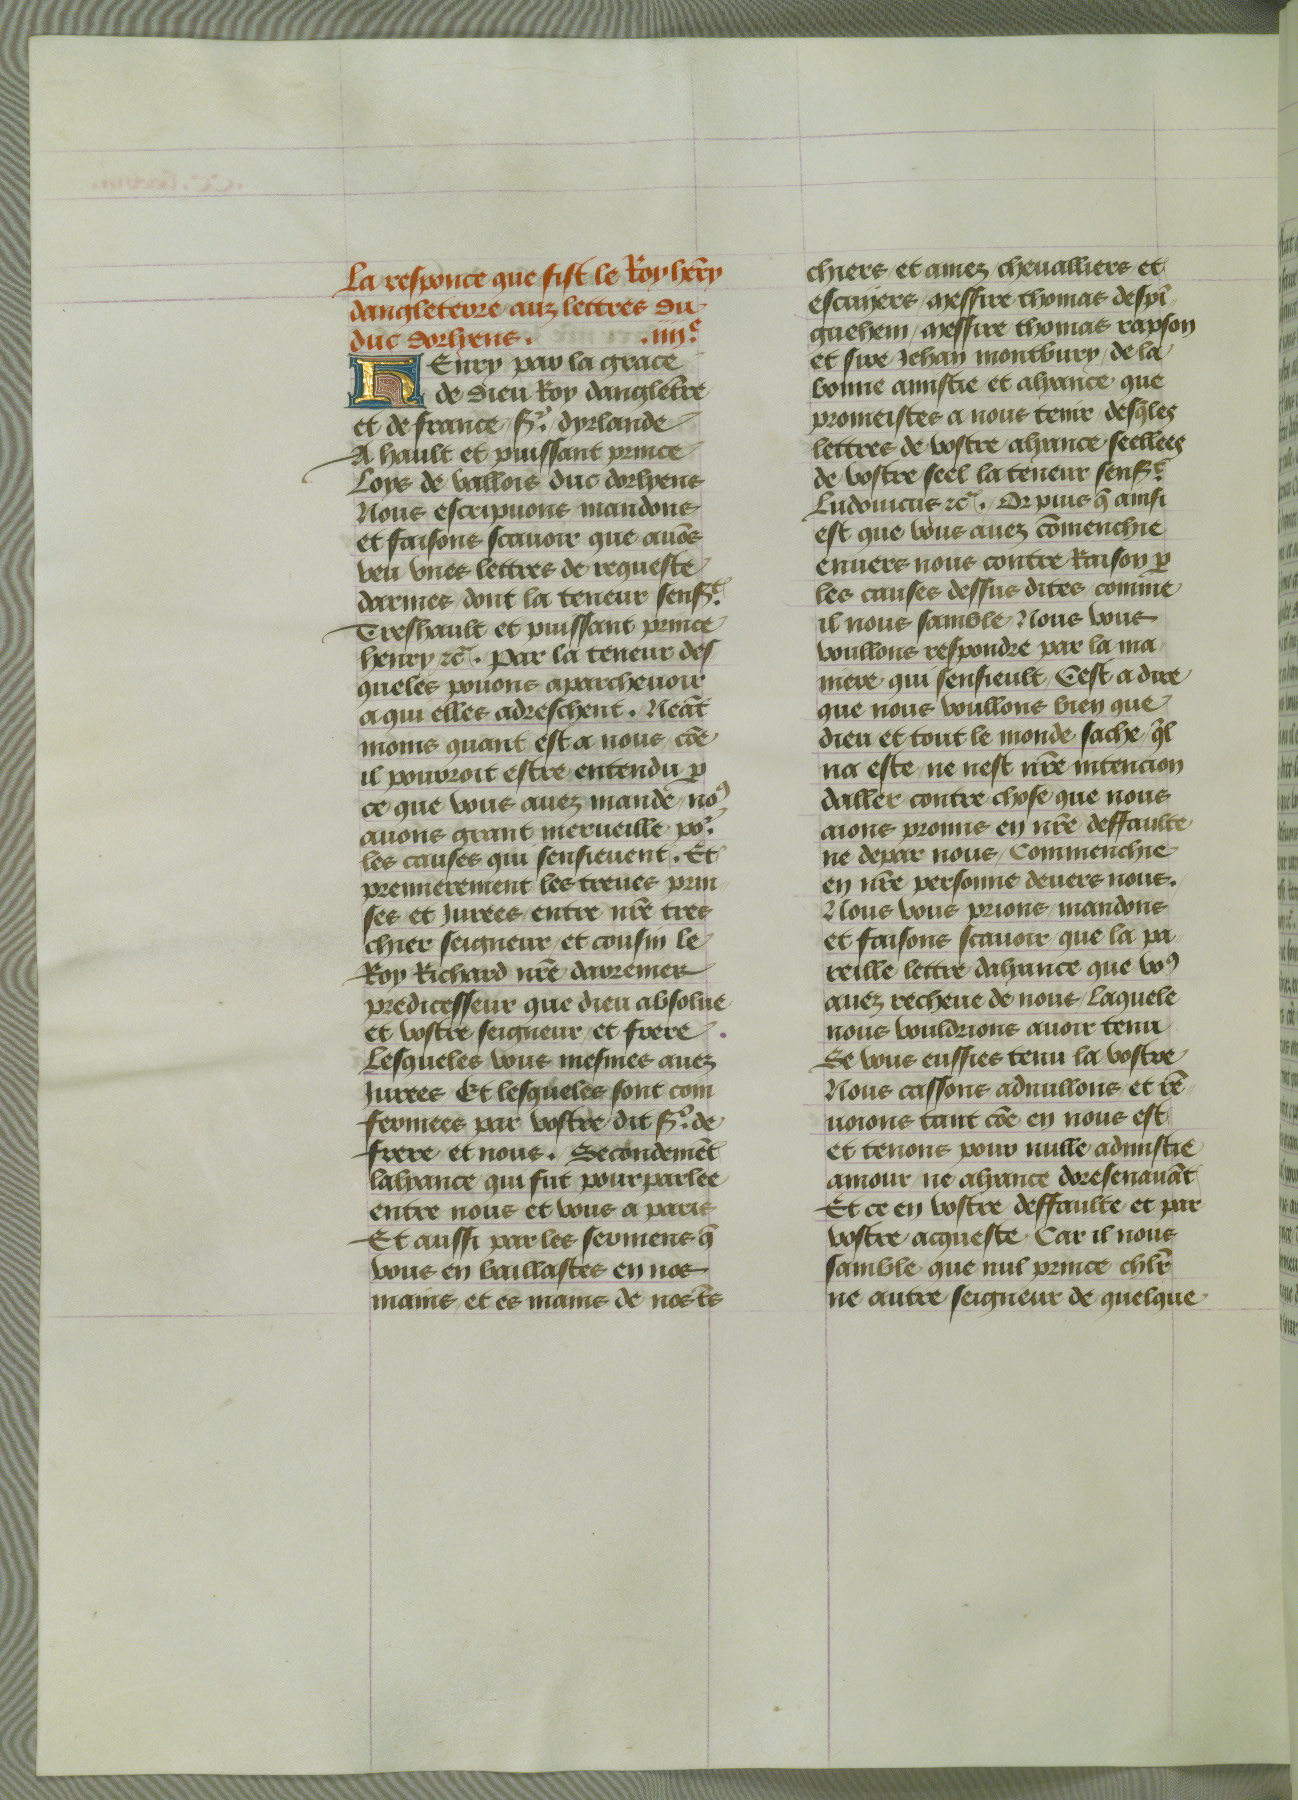 La responce que fist le Roy hēry
dangleterre aux lettres du
duc dorlyens. .iiii.e
HEnry par la grace
de dieu Roy dangletr̄e
et de france / sr. dyrlande
A hault et puissant prince
Loys de vallois duc dorlyens
Nous escripuons mandons
et faisons scauoir que auōs
veu vnes lettres de requeste
darmes / dont la teneur sensīt.
Treshault et puissant prince
henry / etc̄. Par la teneur des
queles pouons aparcheuoir
a qui elles adreschent. Neāt
moins quant est a nous / cōe
il pourroit estre entendu p̱
ce que vous auez mande / noꝰ
auons grant merueille por.
les causes qui sensieuent. Et
premierement les treues prin
ses et Jurees / entre nr̄e tres
chier seigneur / et cousin le
Roy Richard nr̄e darremier
predicesseur que dieu absolue
et vostre seigneur / et frere
Lesqueles vous mesmes auez
Jurees Et lesqueles sont com
fermees par vostre dit sr. de
frere et nous. Secondemēt
lalyance qui fut pourparlee
entre nous et vous a paris
Et aussi par les sermens q̄
vous en baillastes en nos
mains / et es mains de nos ts̄
chiers / et amez cheualliers et
escuyers / messire thomas despī
guehem / messire thomas rapson
et sire Jehan montbury / de la
bonne amistie et alyance que
promeistes a nous tenir / desq̄les
lettres de vostre alyance seellees
de vostre seel la teneur sensīt.
Ludouicus etc̄. Or puis q̄ ainsi
est que vous auez cōmenchie
enuers nous contre Raison p̱
les causes dessus dites / comme
il nous samble / Nous vous
voullons respondre par la ma
niere qui sensieult / Cest a dire
que nous voullons bien que
dieu et tout le monde sache / q̄l
na este ne nest nr̄e intencion
daller contre chose que nous
aions promis en nr̄e deffaulte
ne depar nous / Commenchie
en nr̄e personne deuers nous.
Nous vous prions / mandons
et faisons scauoir / que la pa
reille lettre dalyance que voꝰ
auez recheue de nous / Laquele
nous vouldrions auoir tenu
Se vous eussies tenu la vostre
Nous cassons adnullons et rē
uoions tant cōe en nous est
et tenons pour nulle admistie
amour / ne alyance doresenauāt
Et ce en vostre deffaulte et par
vostre acqueste / Car il nous
samble que nul prince chlr̄
ne autre seigneur de quelque